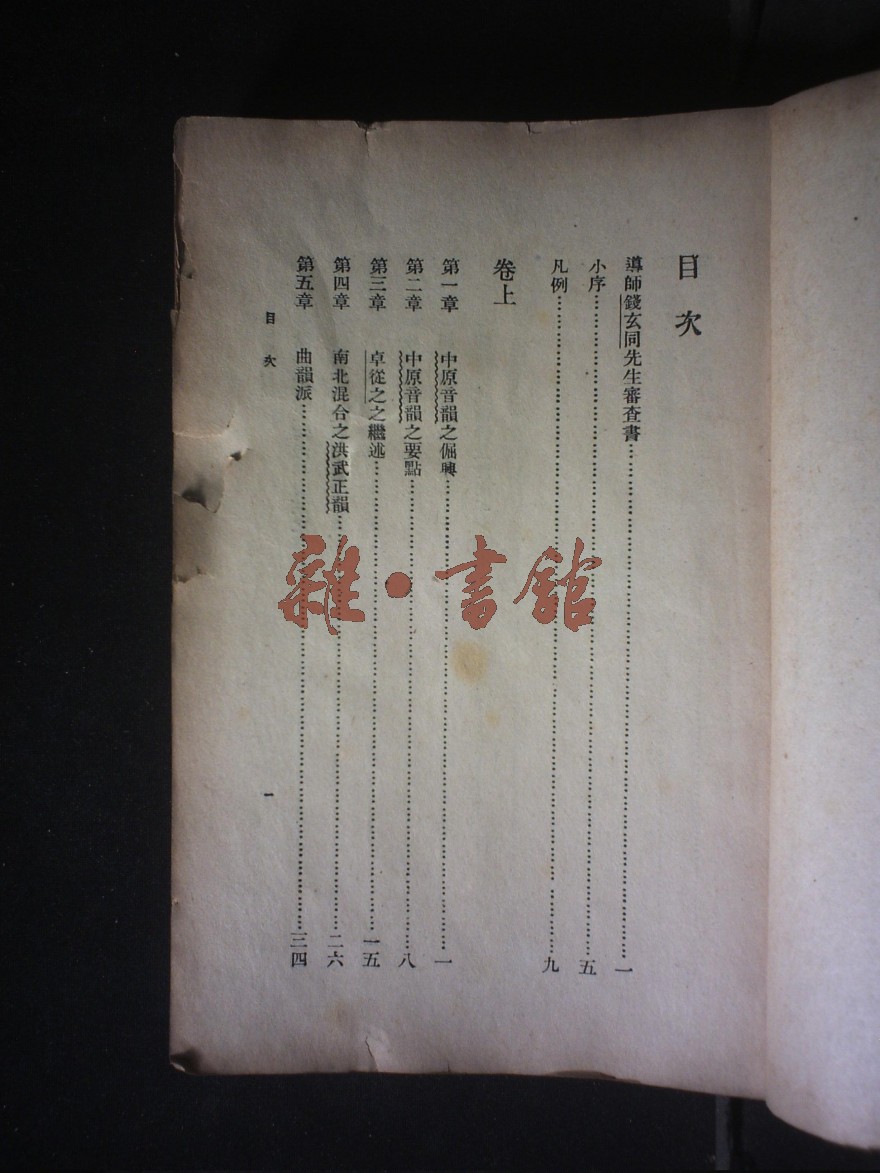 目次
導師錢玄同先生審查書……一
小序……五
凡例……九
卷上
第一章 中原音韻之倔興……一
第二章 中原音韻之要點……八
第三章 卓從之之繼述……一五
第四章 南北混合之洪武正韻……二六
第五章 曲韻派……三四
目次 一
雜·書館